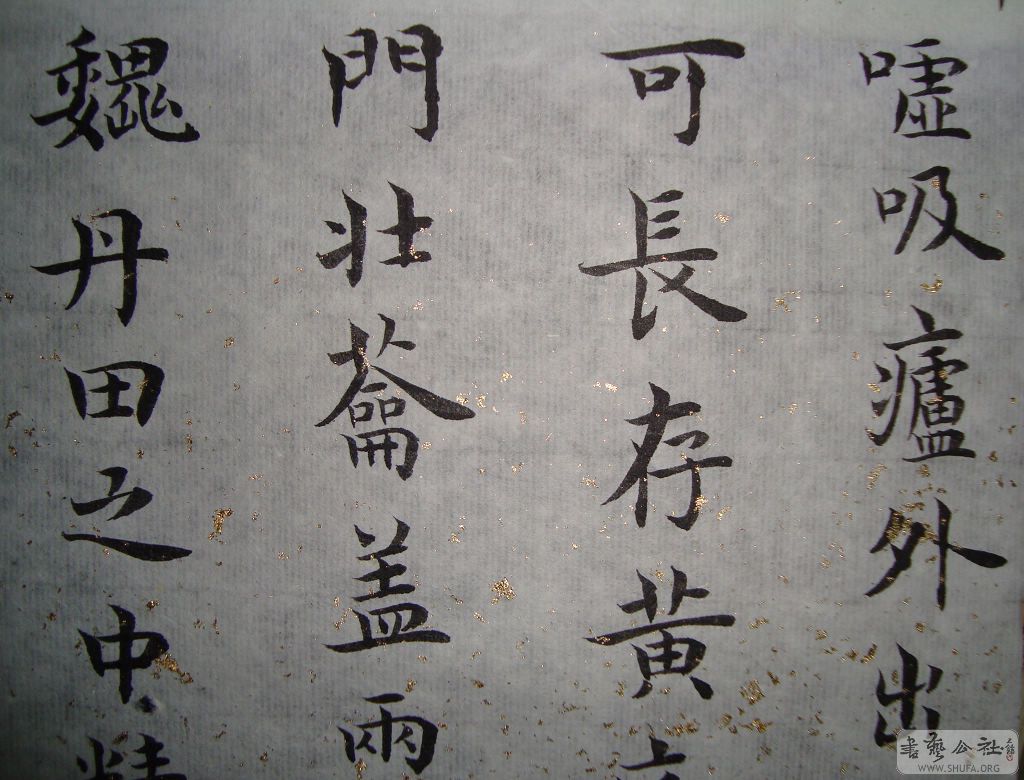 嘘吸廬外出
可長存黃
門壯蘥盖兩
魏丹田之中精
書藝公社
WWW.SHUFA.ORG